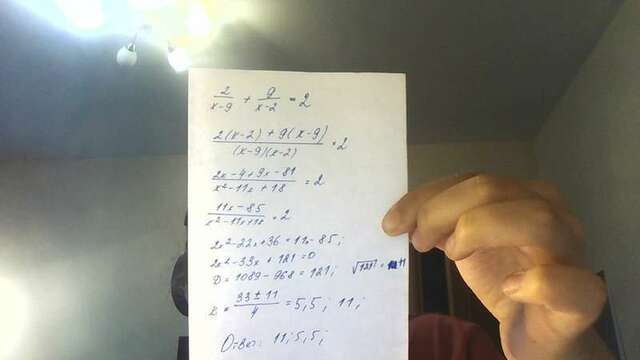 2/(x-9) + 9/(x-2) = 2
(2(x-2) + 9(x-9))/((x-9)(x-2)) = 2
(2x-4+9x-81)/(x²-11x+18) = 2
(11x-85)/(x²-11x+18) = 2
2x²-22x+36 = 11x-85;
2x²-33x+121=0
D=1089-968=121; √121 = 11
x = (33±11)/4 = 5,5; 11;
Ответ: 11; 5,5;